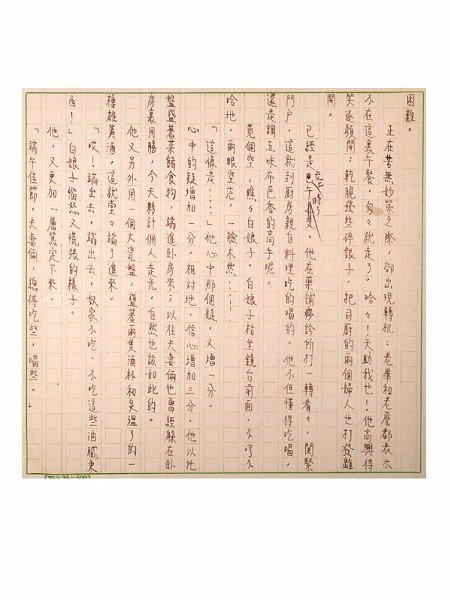 困難。
正在苦無妙策之際，卻出現轉机：老畢和老詹都表示
不在這裏午餐，匆々就走了。哈々！天助我也！他高興得
笑逐顏開；乾脆發些碎銀子，把司厨的兩個婦人也打發離
開。
已經是近午時，他在藥鋪療診所打一轉看々，關緊
門户，這就到厨房親自料理吃的喝的。他不但懂得吃喝，
還是調五味布色香的高手呢。
覓個空，瞧々白娘子。白娘子枯坐鏡台前面，不哼不
哈地，兩眼空茫，一臉木然……
「這像是……」他心中那個疑，又增一分。
心中的疑增加一分，相对地，信心增加三分。他以地
盤盛着菜餚食物，端進卧房來；以往夫妻倆也曾經躲在卧
房裏用膳，今天夥計個人走光，自然也該如此的。
他又另外用一個大瓷盤，盛着兩隻酒杯和吳溫了的一
樽雄黃酒，這就雙々端了進來。
「哎！端出去，端出去，奴家不吃，不吃這些油膩東
西！」白娘子惱怒又慌張的樣子。
他，又更加一層篤定下來。
「端午佳節，夫妻倆，總得吃些，喝些。」
(20×25=500)